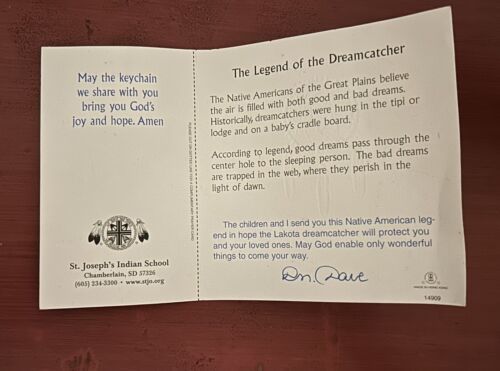 May the keychain
we share with you
bring you God's
joy and hope. Amen
St. Joseph's Indian School
Chamberlain, SD 57326
(605) 234-3300 • www.stjo.org
The Legend of the Dreamcatcher
The Native Americans of the Great Plains believe
the air is filled with both good and bad dreams.
Historically, dreamcatchers were hung in the tipi or
lodge and on a baby's cradle board.
According to legend, good dreams pass through the
center hole to the sleeping person. The bad dreams
are trapped in the web, where they perish in the
light of dawn.
The children and I send you this Native American leg-
end in hope the Lakota dreamcatcher will protect you
and your loved ones. May God enable only wonderful
things to come your way.
Dn. Dave
MADE IN HONG KONG
14909